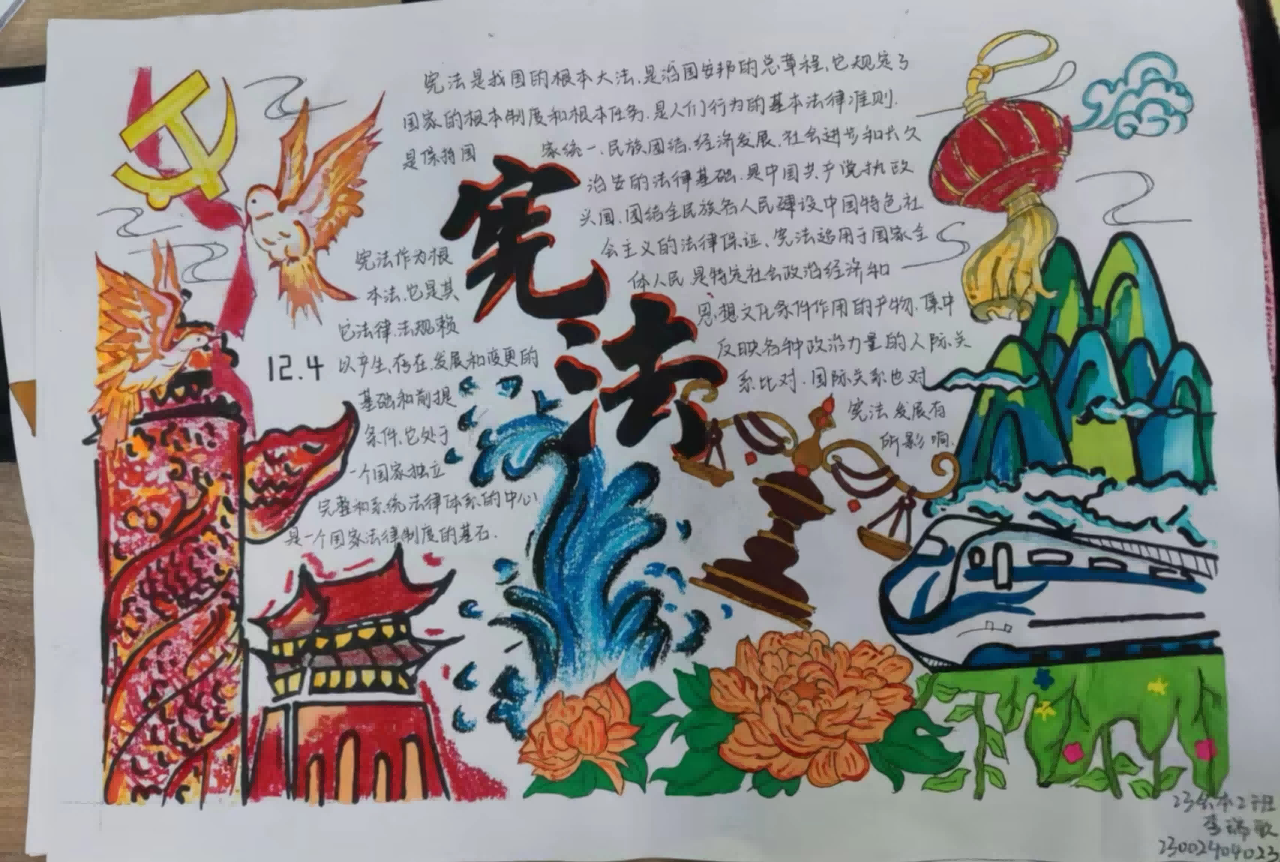 宪法是我国的根本大法,是治国安邦的总章程,它规定了
国家的根本制度和根本任务.是人们行为的基本法律准则.
是保持国家统一.民族团结.经济发展.社会进步和长久
治安的法律基础.是中国共产党执政
兴国.团结全民族各人民建设中国特色社
会主义的法律保证、宪法适用于国家全
体人民.是特定社会政治经济和
思想文化条件作用的产物.集中
反映各种政治力量的人际关
系比对.国际关系也对
宪法发展有
所影响.
宪法
宪法作为根
本法.它是其
它法律.法规赖
12.4 以产生.存在.发展和变更的
基础和前提
条件.它处于
一个国家独立
完整和系统法律体系的中心
是一个国家法律制度的基石.
本2班
李瑞